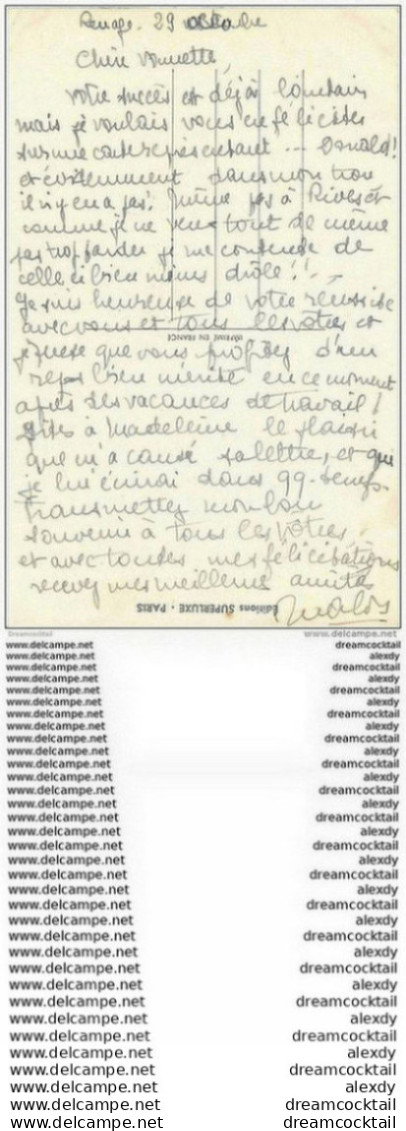 Renage. 29 octobre
Chère Vonnette,
Votre succès est déjà lointain
mais je voulais vous en féliciter
sur une carte représentant ... Donald!
et évidemment dans mon trou
il n'y en a pas! même pas à Rives et
comme je ne veux tout de même
pas trop tarder je me contente de
celle ci bien moins drôle!!
Je suis heureuse de votre réussite
avec vous et tous les vôtres et
IMPRIMÉ EN FRANCE
que vous profitez d'un
repos bien mérité en ce moment
après des vacances de travail!
Dites à Madeleine le plaisir
que m'a causé sa lettre, et que
je lui écrirai dans qq. temps.
Transmettez mon bon
souvenir à tous les vôtres,
et avec toutes mes félicitations
recevez mes meilleures amitiés
Éditions SUPERLUXE - PARIS
Dreamcocktail www.delcampe.net
www.delcampe.net dreamcocktail
www.delcampe.net alexdy
www.delcampe.net dreamcocktail
www.delcampe.net alexdy
www.delcampe.net dreamcocktail
www.delcampe.net alexdy
www.delcampe.net dreamcocktail
www.delcampe.net alexdy
www.delcampe.net dreamcocktail
www.delcampe.net alexdy
www.delcampe.net dreamcocktail
www.delcampe.net alexdy
www.delcampe.net dreamcocktail
www.delcampe.net alexdy
www.delcampe.net dreamcocktail
www.delcampe.net alexdy
www.delcampe.net dreamcocktail
www.delcampe.net alexdy
www.delcampe.net dreamcocktail
www.delcampe.net alexdy
www.delcampe.net dreamcocktail
www.delcampe.net alexdy
www.delcampe.net dreamcocktail
www.delcampe.net alexdy
www.delcampe.net dreamcocktail
www.delcampe.net alexdy
www.delcampe.net dreamcocktail
www.delcampe.net alexdy
www.delcampe.net dreamcocktail
www.delcampe.net alexdy
www.delcampe.net dreamcocktail
www.delcampe.net alexdy
www.delcampe.net dreamcocktail
www.delcampe.net alexdy
www.delcampe.net dreamcocktail
www.delcampe.net dreamcocktail